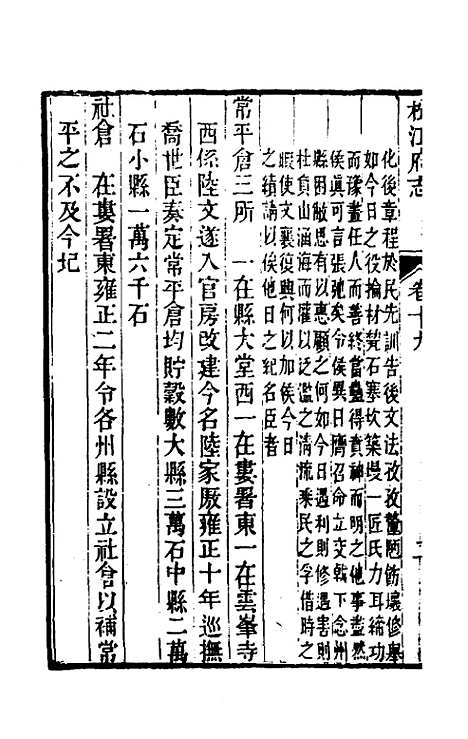 松江府志 卷十九
化後章程於民先訓告後文法孜孜釐陋飭壞修舉
如今日之役掄材甃石塞坎築堤一匠氏力耳締功
而豫盡任人而善終當蠱得賁神而明之他事盡然
侯眞可言張弛矣令侯異日膺召命立交戟下念州
縣困敝思有以惠顧之何如今日遇利則修遇害則
杜負山涵海而灌以泛濫之清流乘民之孚借時之
暇使文襄復興何以加侯今日
之績請以俟他日之紀名臣者
常平倉三所 一在縣大堂西一在婁署東一在雲峯寺
西係陸文遂入官房改建今名陸家厫雍正十年巡撫
喬世臣奏定常平倉均貯穀數大縣三萬石中縣二萬
石小縣一萬六千石
社倉 在婁署東雍正二年令各州縣設立社倉以補常
平之不及今圮